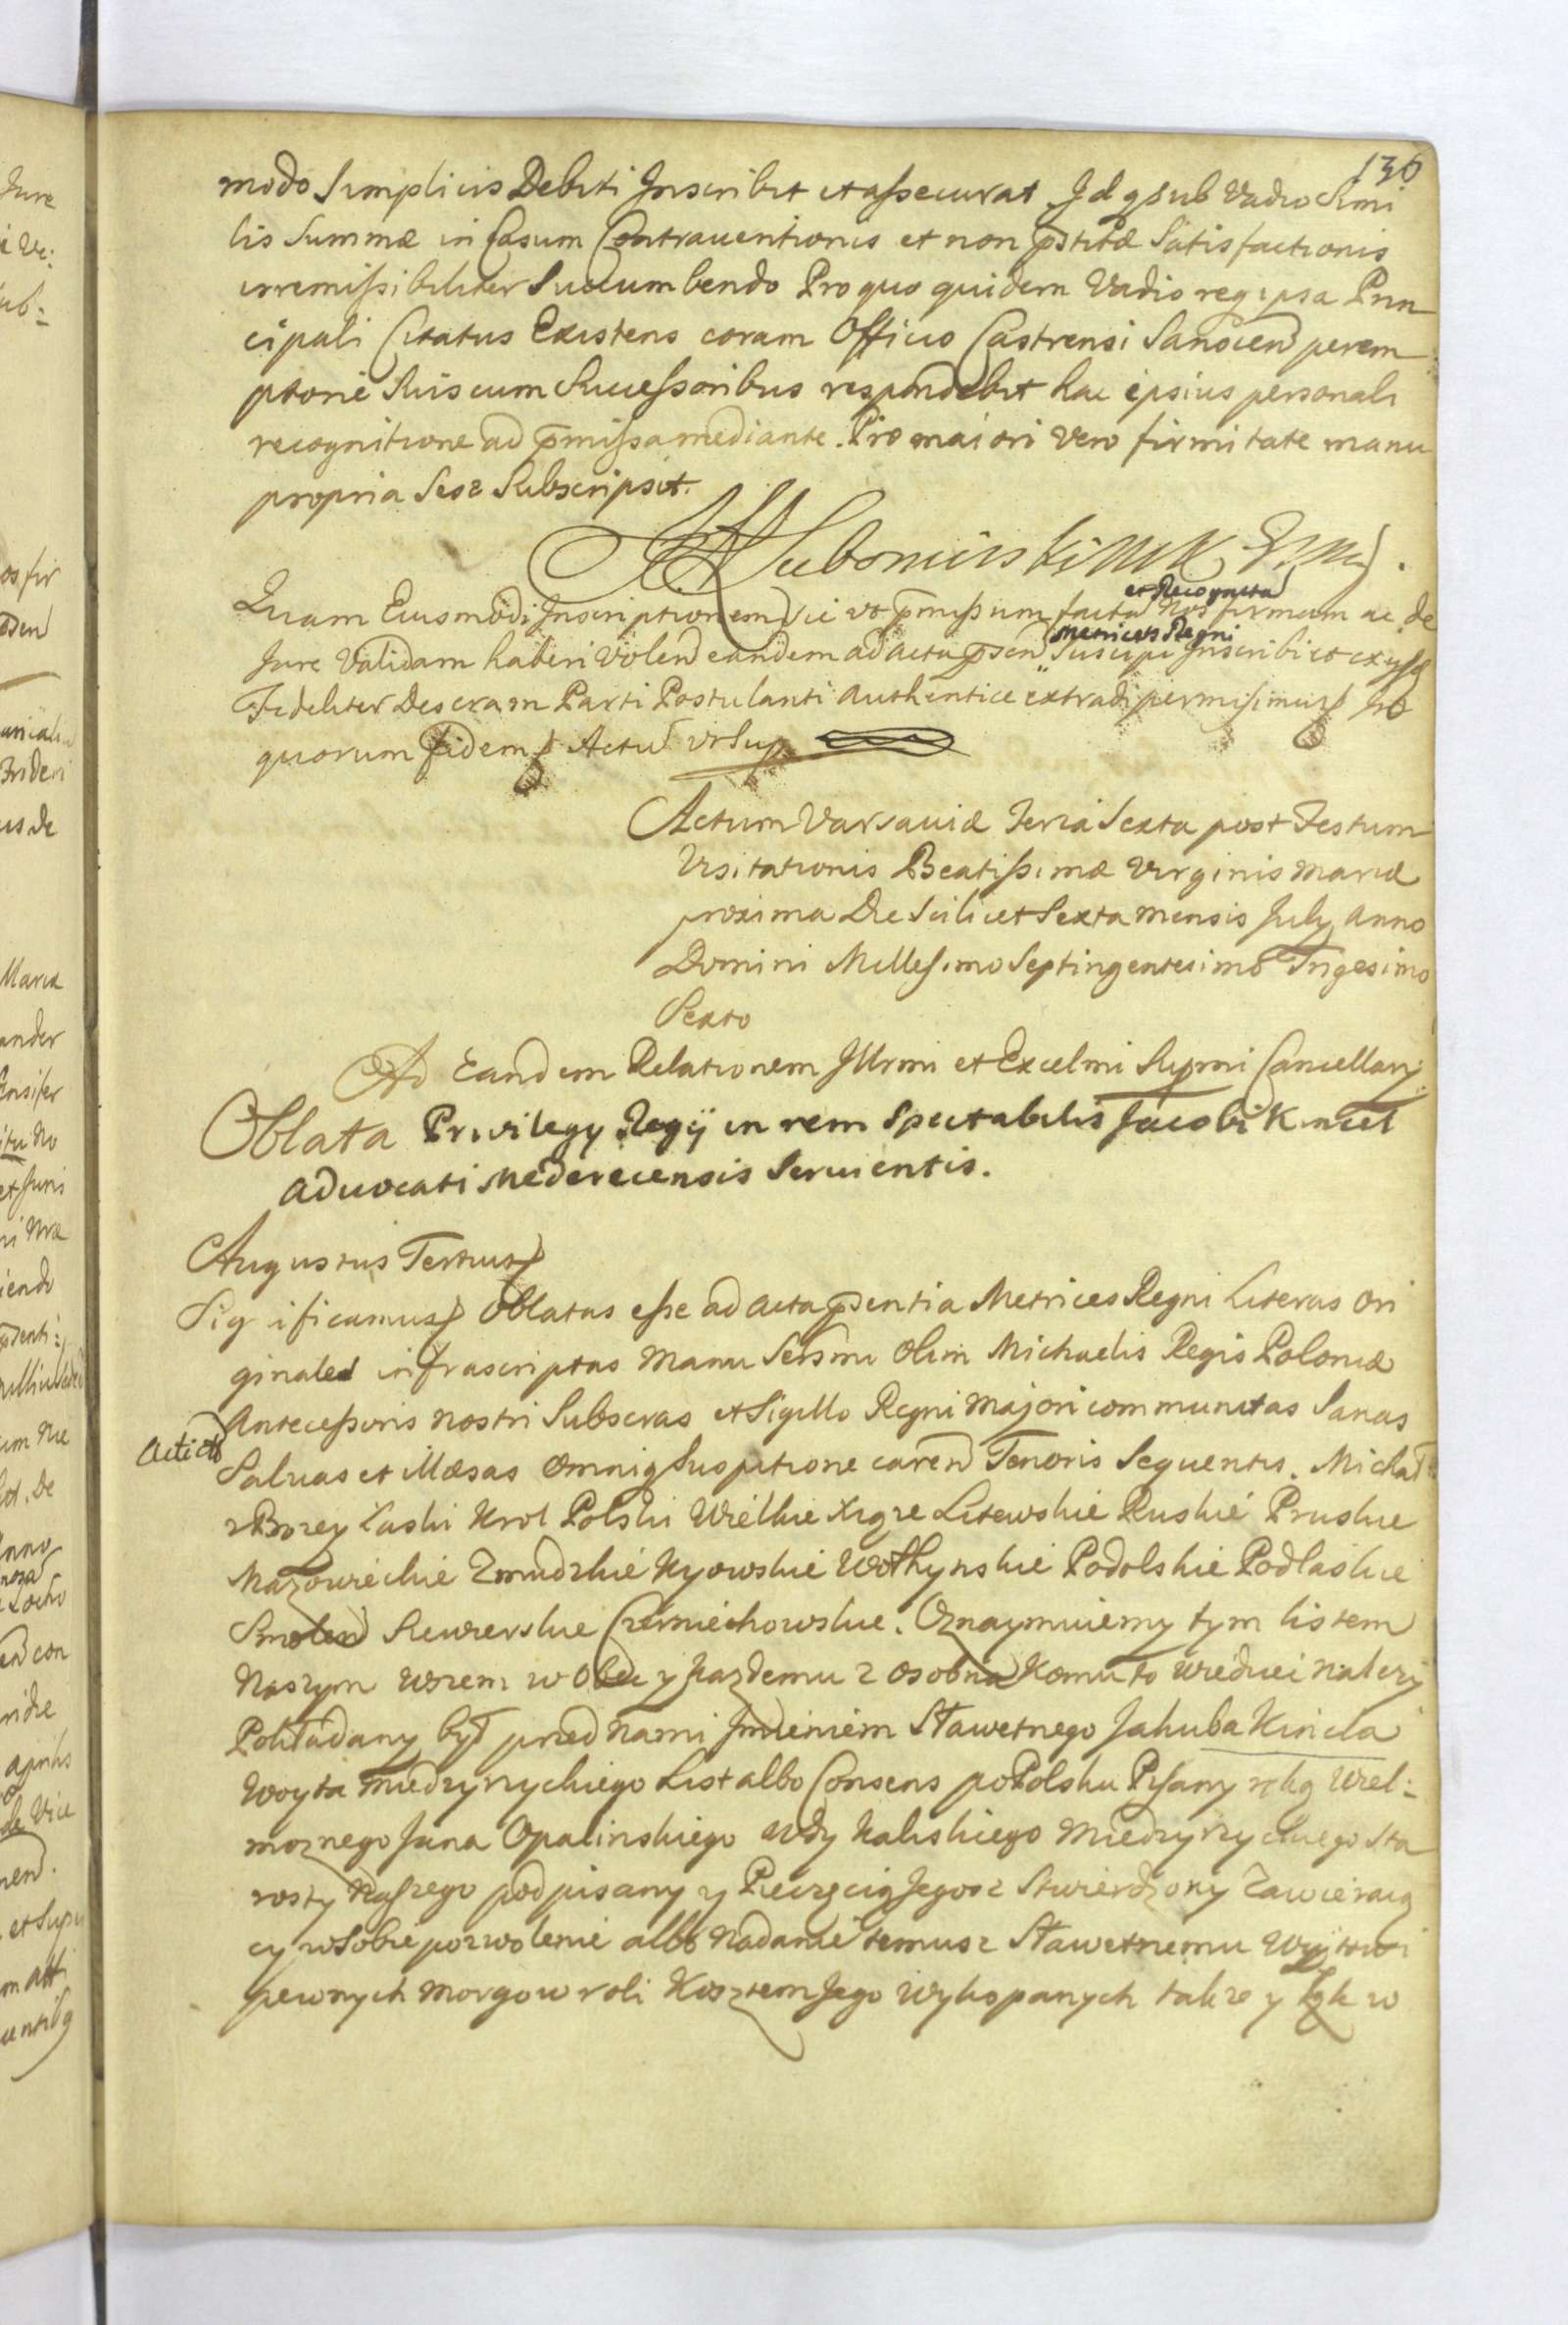 136
modo Simplicis Debiti Inscribit et assecurat Idq sub Vadio Simi
lis Summæ in Casum Contrauentionis et non p̄stitæ Satisfactionis
irremissibiliter Succumbendo Pro quo quidem Vadio req ipsa Prin
cipali Citatus Existens coram Officio Castrensi Sanocien perem
ptorie Suis cum Successoribus respondebit hac ipsius personali
recognitione ad p̄missa mediante. Pro maiori vero firmitate manu
propria Sese Subscripsit.
Lubomirski
Quam Eiusmodi Inscriptionem Sic ut p̄missum facta et Recognita Nos firmam ac de
Jure Validam haberi Volen eandem ad acta p̄sen Metrices Regni Suscipi Inscribi et ex ijsdē
Fideliter Descram Parti Postulanti authentice extradi permisimus In
quorum fidem Actū ut Sup
Actum Varsauiæ Feria Sexta post Festum
Visitationis Beatissimæ Virginis Mariæ
proxima Die Scilicet Sexta mensis July Anno
Domini Millesimo Septingentesimo Trigesimo
Sexto
Ad Eandem Relationem Illrmi et Excelmi Suprmi Cancellarij
Oblata Privilegy Regij in rem Spectabilis Jacobi Kincel
Advocati Mederecensis Servientis.
Augustus Tertius
Significamus Oblatas esse ad acta p̄sentia Metrices Regni Literas Ori
ginales infrascriptas Manu Sersmi Olim Michaelis Regis Poloniæ
Antecessoris nostri Subscras et Sigillo Regni Majori communitas Sanas
Salvas et illæsas Omniq Suspitione caren Tenoris Sequentis. Michał
z Bozey Łaski Krol Polski Wielkie Xiąze Litewskie Ruskie Pruskie
Mazowieckie Zmudzkie Kyowskie Wołhynskie Podolskie Podlaskie
Smolen Siewierskie Czerniechowskie. Oznaymuiemy tym listem
Naszym wszem w Obec y kazdemu z osobna Komu to wiedziec nalezy
Pokładany był przed nami Imieniem Sławetnego Jakuba Kincla
Woyta Miedzyrzyckiego List albo Consens po Polsku Pisany ręką Wiel:
moznego Jana Opalinskiego Wdy Kaliskiego Miedzyrzyckiego Sta
rosty Naszego podpisany y Pieczęcią Jegosz Stwierdzony Zawieraią
cy w Sobie pozwolenie albo nadanie temusz Sławetnemu Wojtowi
pewnych morgow roli Kosztem Jego Wykopanych takze y Łąk w